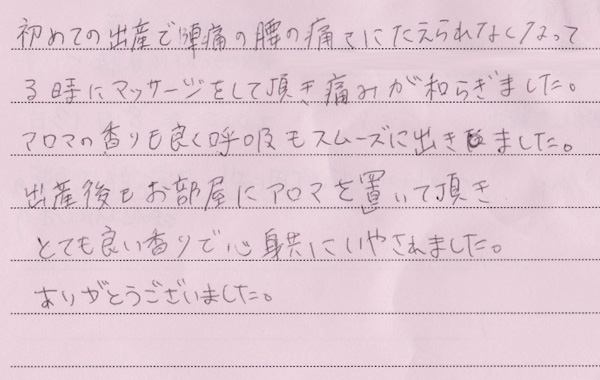 初めての出産で陣痛の腰の痛さにたえられなくなって
る時にマッサージをして頂き痛みが和らぎました。
アロマの香りも良く呼吸もスムーズに出きました。
出産後もお部屋にアロマを置いて頂き
とても良い香りで心身共にいやされました。
ありがとうございました。